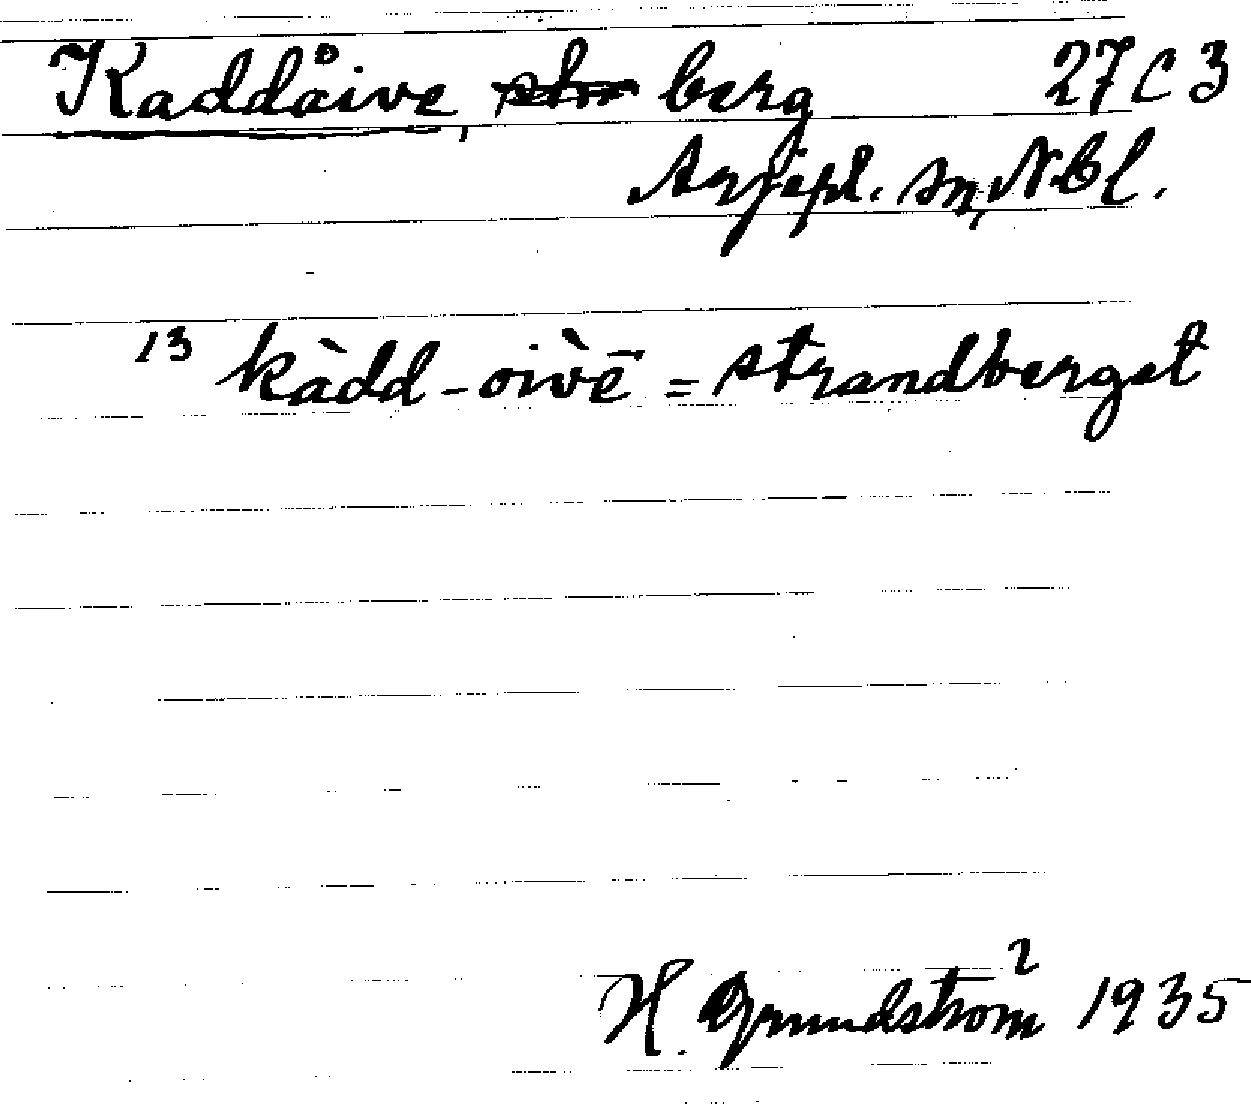 Kaddåive, berg 27 C 3
Arjepl. sn, Nbl.
13 kàdd-oiv̀ē = strandberget
H. Grundström 2 1935